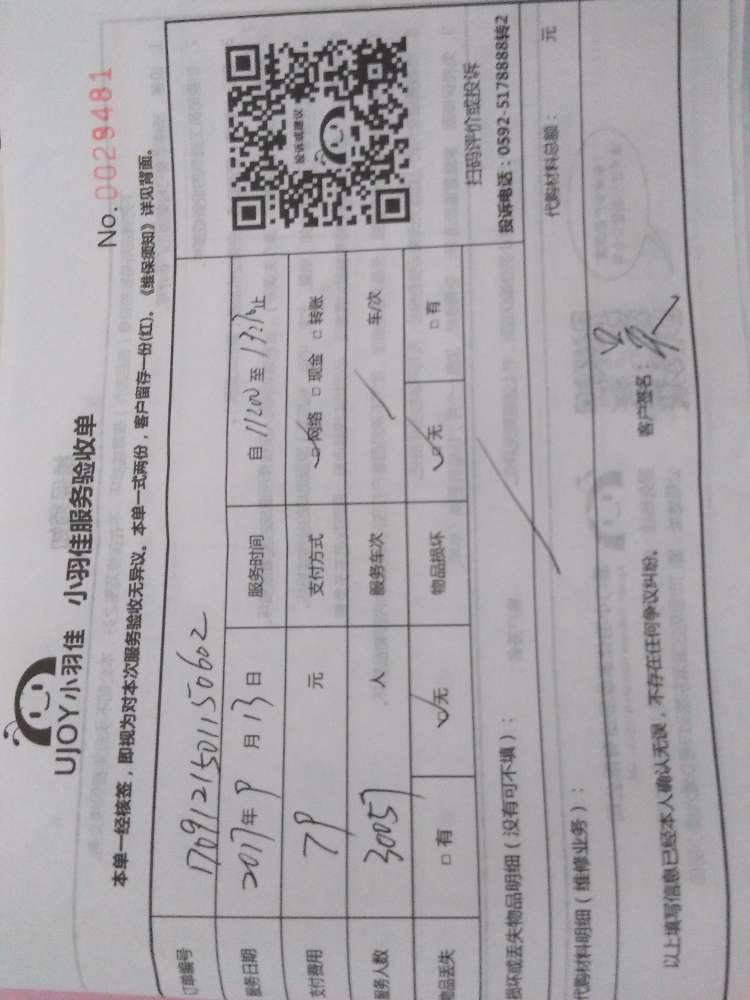 UJOY小羽佳 小羽佳服务验收单
No. 0029481
本单一经核签，即视为对本次服务验收无异议。本单一式两份，客户留存一份(红)。《维保须知》详见背面。
订单编号 1709121501150602
服务日期 2017年9月13日 服务时间 自 至 止
支付费用 79 元 支付方式 网络 现金 转账
服务人数 30057 人 服务车次 车/次
物品丢失 有 无 物品损坏 无 有
投诉或建议
扫码评价或投诉
投诉电话：0592-5178888转2
损坏或丢失物品明细（没有可不填）：
代购材料明细（维修业务）： 代购材料总额： 元
以上填写信息已经本人确认无误，不存在任何争议纠纷。 客户签名：